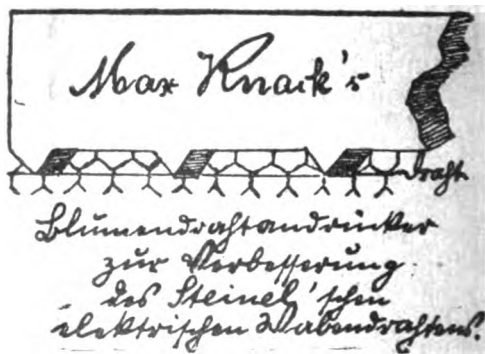 Max Knack's
Draht
Blumendrahtandrücker
zur Verbesserung
des Steinel'schen
elektrischen Wabendrahtens.